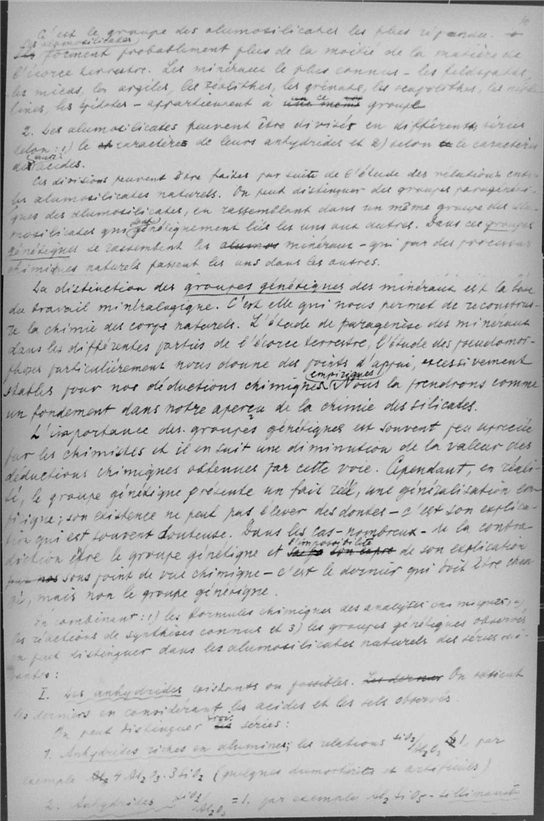 C'est le groupe des alumosilicates les plus répandus.
Les alumosilicates forment probablement plus de la moitié de la matière de
l'écorce terrestre. Les minéraux le plus connus – les feldspaths,
les micas, les argiles, les zéolithes, les grenats, les scapolithes, les néphé-
lines, les épidotes – appartiennent à ce groupe
2. Les alumosilicates peuvent être divisés en différentes séries
selon: 1) le caractère de leurs anhydrides et 2) selon le caractère
acides.
Ces divisions peuvent être faites par suite de l'étude des relations entre
les alumosilicates naturels. On peut distinguer des groupes paragénéti-
ques des alumosilicates, en rassemblant dans un même groupe des alu-
mosilicates qui sont génétiquement liés les uns aux autres. Dans ces groupes
génétiques se rassemblent les minéraux – qui par des processus
chimiques naturels passent les uns dans les autres.
La distinction des groupes génétiques des minéraux est la base
du travail minéralogique. C'est elle qui nous permet de reconstrui-
re la chimie des corps naturels. L'étude de paragenèse des minéraux
dans les différentes parties de l'écorce terrestre, l'étude des pseudomor-
phoses particulièrement nous donne des points d'appui, excessivement
stables pour nos déductions chimiques empiriques. Nous la prendrons comme
un fondement dans notre aperçu de la chimie des silicates.
L'importance des groupes génétiques est souvent peu appréciée
par les chimistes et il en suit une diminution de la valeur des
déductions chimiques obtenues par cette voie. Cependant, en réali-
té, le groupe génétique présente un fait réel, une généralisation em-
pirique; son existence ne peut pas élever des doutes – c'est son explica-
tion qui est souvent douteuse. Dans les cas nombreux de la contra-
diction entre le groupe génétique et l'impossibilité de son explication
sous point de vue chimique – c'est le dernier qui doit être chan-
gé, mais non le groupe génétique.
En combinant: 1) les formules chimiques des analyses 2)
les réactions de synthèses connus et 3) les groupes génétiques observés
on peut distinguer dans les alumosilicates naturels des séries sui-
vantes:
I. Les anhydrides existants ou possibles. On obtient
les derniers en considérant les acides et les sels observés.
On peut distinguer trois séries:
1. Anhydrides riches en alumines; les relations SiO2/Al2O3 <1, par
exemple 4 Al2O3.3SiO2 (quelques dumortiérites et artificiels)
2. Anhydrides SiO2/Al2O3 = 1, par exemple Al2SiO5 – sillimanite